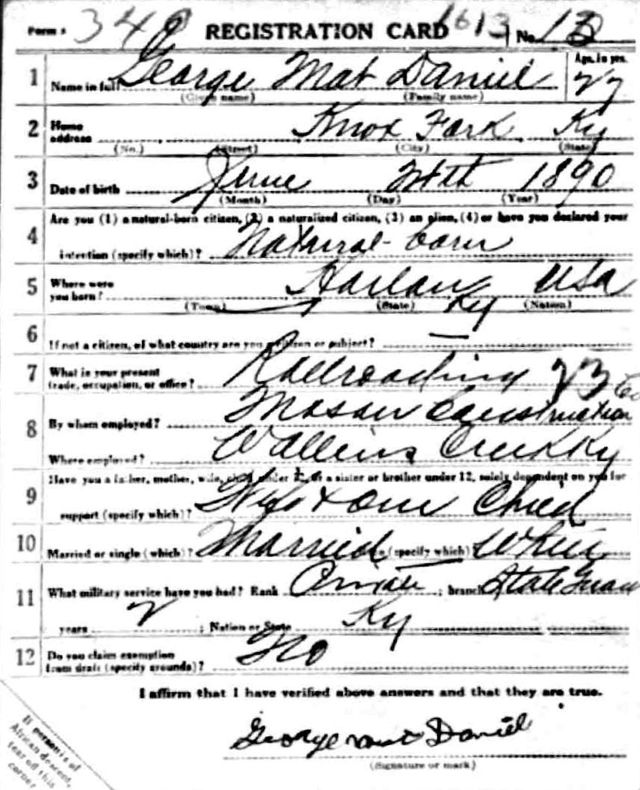 Form 1 348 REGISTRATION CARD 1613 No. 13
1 Name in full George Mat Daniel Age, in yrs. 27
(Given name) (Family name)
2 Home address Knox Fork Ky
(No.) (Street) (City) (State)
3 Date of birth June 24th 1890
(Month) (Day) (Year)
Are you (1) a natural-born citizen, (2) a naturalized citizen, (3) an alien, (4) or have you declared your
4 intention (specify which)? Natural-born
5 Where were you born? Harlan Ky USA
(Town) (State) (Nation)
6 If not a citizen, of what country are you a citizen or subject? —
7 What is your present trade, occupation, or office? Railroading 23
8 By whom employed? Mason Construction
Where employed? Wallins Creek Ky
Have you a father, mother, wife, child under 12, or a sister or brother under 12, solely dependent on you for
9 support (specify which)? Wife + one Child
10 Married or single (which)? Married (specify which)? White
11 What military service have you had? Rank Private ; branch State Guard
years 2 ; Nation or State Ky
12 Do you claim exemption from draft (specify grounds)? No
I affirm that I have verified above answers and that they are true.
George Mat Daniel
(Signature or mark)
If person is of
African descent,
tear off this
corner